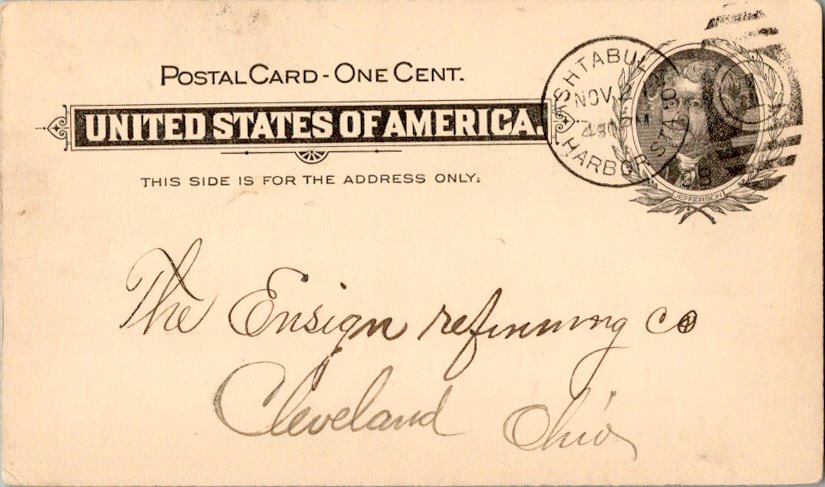 POSTAL CARD - ONE CENT.
UNITED STATES OF AMERICA.
THIS SIDE IS FOR THE ADDRESS ONLY.
ASHTABULA
NOV 2
HARBOR STA.
JEFFERSON
The Ensign refinning co
Cleveland Ohio